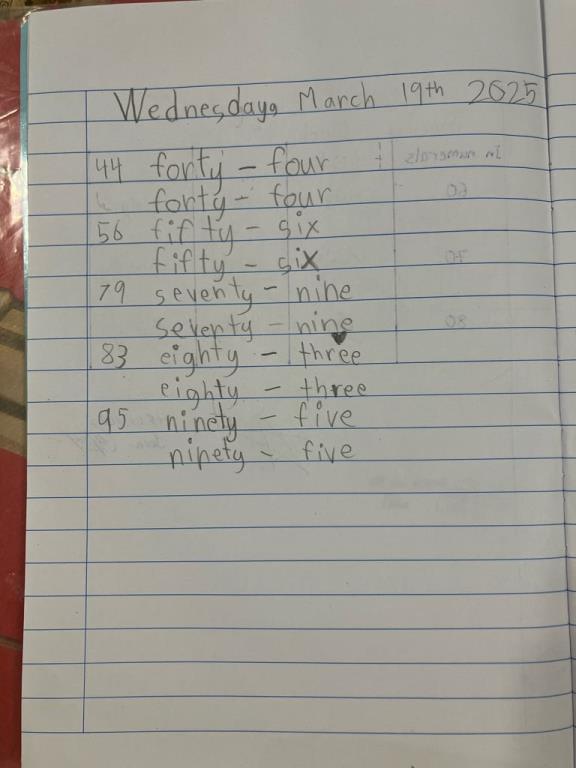 Wednesday, March 19th 2025
44 forty - four
forty - four
56 fifty - six
fifty - six
79 seventy - nine
seventy - nine
83 eighty - three
eighty - three
95 ninety - five
ninety - five
In numerals
60
70
80